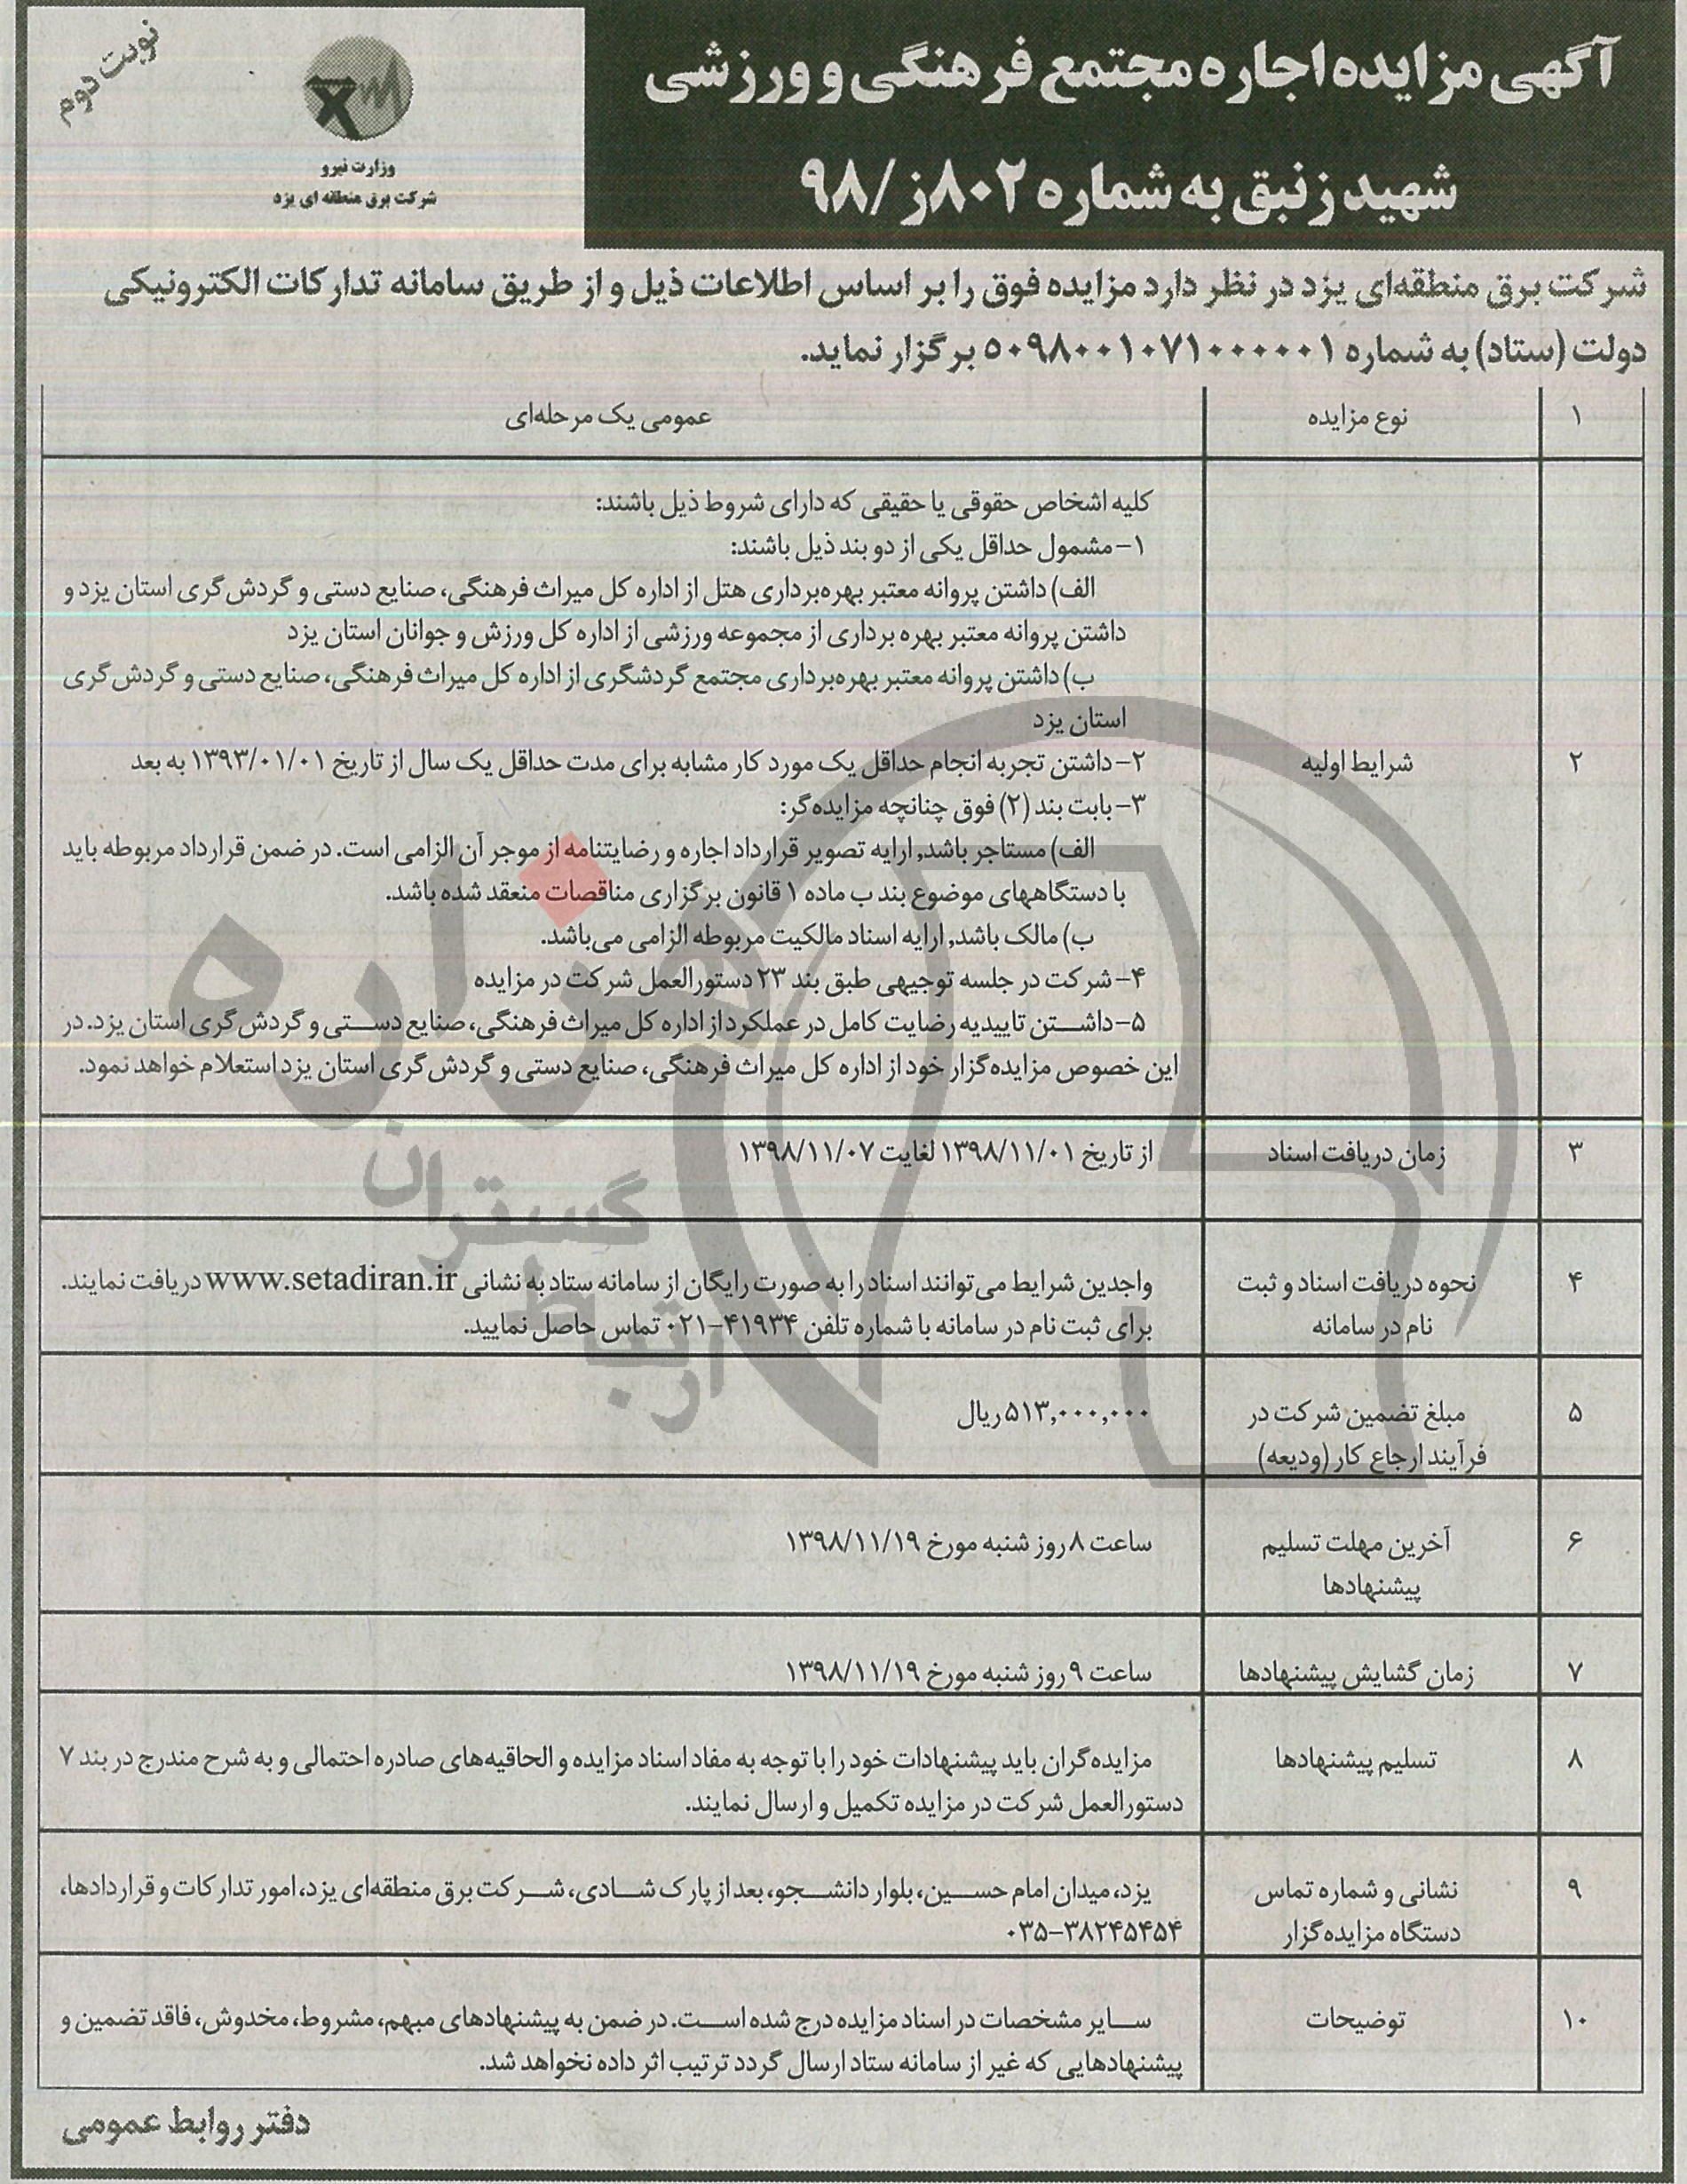 آگهی مزایده اجاره مجتمع فرهنگی و ورزشی
شهید زنبق به شماره ۸۰۲ز/۹۸
نوبت دوم
وزارت نیرو
شرکت برق منطقه ای یزد
شرکت برق منطقه‌ای یزد در نظر دارد مزایده فوق را بر اساس اطلاعات ذیل و از طریق سامانه تدارکات الکترونیکی
دولت (ستاد) به شماره ۵۰۹۸۰۰۱۰۷۱۰۰۰۰۰۱ برگزار نماید.
۱ نوع مزایده عمومی یک مرحله‌ای
کلیه اشخاص حقوقی یا حقیقی که دارای شروط ذیل باشند:
۱- مشمول حداقل یکی از دو بند ذیل باشند:
الف) داشتن پروانه معتبر بهره‌برداری هتل از اداره کل میراث فرهنگی، صنایع دستی و گردش‌گری استان یزد و
داشتن پروانه معتبر بهره برداری از مجموعه ورزشی از اداره کل ورزش و جوانان استان یزد
ب) داشتن پروانه معتبر بهره‌برداری مجتمع گردشگری از اداره کل میراث فرهنگی، صنایع دستی و گردش‌گری
استان یزد
۲ شرایط اولیه ۲- داشتن تجربه انجام حداقل یک مورد کار مشابه برای مدت حداقل یک سال از تاریخ ۱۳۹۳/۰۱/۰۱ به بعد
۳- بابت بند (۲) فوق چنانچه مزایده‌گر:
الف) مستاجر باشد, ارایه تصویر قرارداد اجاره و رضایتنامه از موجر آن الزامی است. در ضمن قرارداد مربوطه باید
با دستگاههای موضوع بند ب ماده ۱ قانون برگزاری مناقصات منعقد شده باشد.
ب) مالک باشد, ارایه اسناد مالکیت مربوطه الزامی می‌باشد.
۴- شرکت در جلسه توجیهی طبق بند ۲۳ دستورالعمل شرکت در مزایده
۵- داشتن تاییدیه رضایت کامل در عملکرد از اداره کل میراث فرهنگی، صنایع دستی و گردش‌گری استان یزد. در
این خصوص مزایده‌گزار خود از اداره کل میراث فرهنگی، صنایع دستی و گردش‌گری استان یزد استعلام خواهد نمود.
۳ زمان دریافت اسناد از تاریخ ۱۳۹۸/۱۱/۰۱ لغایت ۱۳۹۸/۱۱/۰۷
۴ نحوه دریافت اسناد و ثبت واجدین شرایط می‌توانند اسناد را به صورت رایگان از سامانه ستاد به نشانی www.setadiran.ir دریافت نمایند.
نام در سامانه برای ثبت نام در سامانه با شماره تلفن ۴۱۹۳۴-۰۲۱ تماس حاصل نمایید.
۵ مبلغ تضمین شرکت در ۵۱۳,۰۰۰,۰۰۰ ریال
فرآیند ارجاع کار (ودیعه)
۶ آخرین مهلت تسلیم ساعت ۸ روز شنبه مورخ ۱۳۹۸/۱۱/۱۹
پیشنهادها
۷ زمان گشایش پیشنهادها ساعت ۹ روز شنبه مورخ ۱۳۹۸/۱۱/۱۹
۸ تسلیم پیشنهادها مزایده‌گران باید پیشنهادات خود را با توجه به مفاد اسناد مزایده و الحاقیه‌های صادره احتمالی و به شرح مندرج در بند ۷
دستورالعمل شرکت در مزایده تکمیل و ارسال نمایند.
۹ نشانی و شماره تماس یزد، میدان امام حسین، بلوار دانشجو، بعد از پارک شادی، شرکت برق منطقه‌ای یزد، امور تدارکات و قراردادها،
دستگاه مزایده‌گزار ۳۸۲۴۵۴۵۴-۰۳۵
۱۰ توضیحات سایر مشخصات در اسناد مزایده درج شده است. در ضمن به پیشنهادهای مبهم، مشروط، مخدوش، فاقد تضمین و
پیشنهادهایی که غیر از سامانه ستاد ارسال گردد ترتیب اثر داده نخواهد شد.
دفتر روابط عمومی
هزاره
گستران
ارتباط